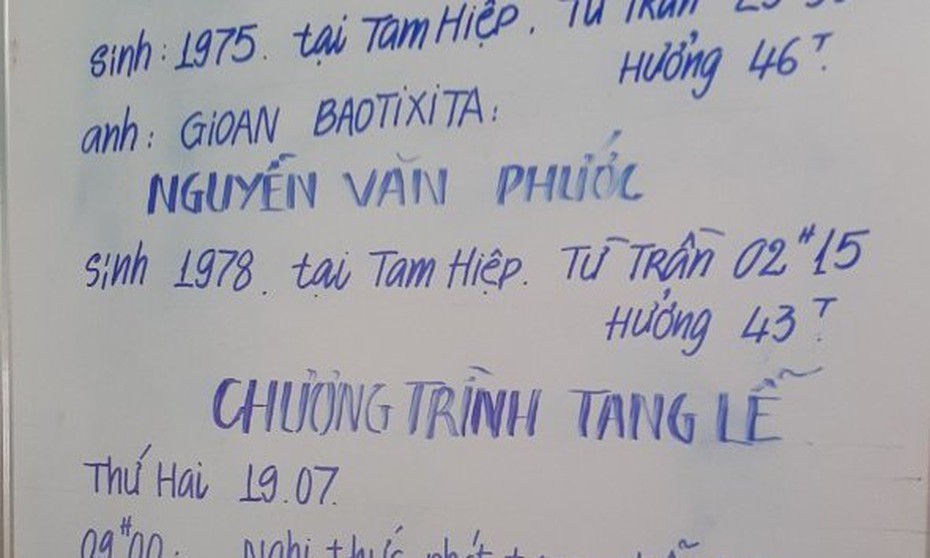 sinh: 1975. tại Tam Hiệp. Từ Trần
Hưởng 46T.
anh: GIOAN BAOTIXITA:
NGUYỄN VĂN PHƯỚC
sinh 1978. tại Tam Hiệp. Từ Trần 02H15
Hưởng 43T.
CHƯƠNG TRÌNH TANG LỄ
Thứ Hai 19.07.
09H00: Nghi thức phát tang